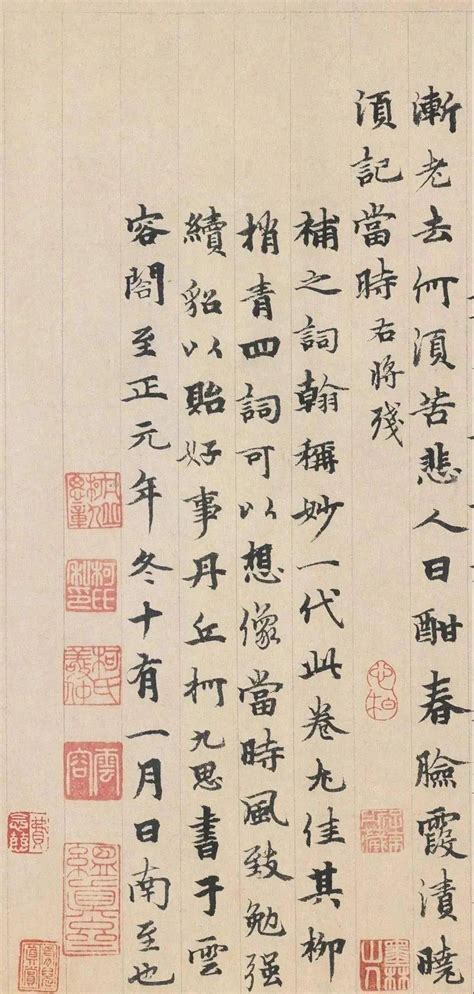 漸老去何湏苦悲人日酣春臉霞漬曉
湏記當時右將殘
補之詞翰稱妙一代此卷尤佳其柳
梢青四詞可以想像當時風致勉强
續貂以貽好事丹丘柯九思書于雲
容閣至正元年冬十有一月日南至也
柯氏私印
雲容
墨林山人